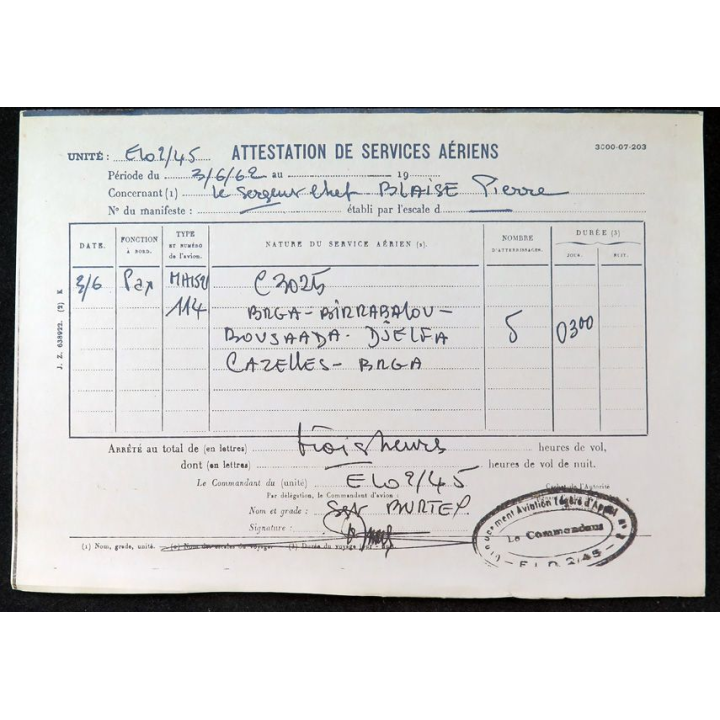 3000-07-203
UNITÉ : ELO 2/45 ATTESTATION DE SERVICES AÉRIENS
Période du 3/6/62 au 19
Concernant (1) le sergent chef BLAISE Pierre
N° du manifeste : établi par l'escale d
DATE. FONCTION À BORD. TYPE ET NUMÉRO de l'avion. NATURE DU SERVICE AÉRIEN (2). NOMBRE D'ATTERRISSAGES. DURÉE (3)
JOUR. NUIT.
3/6 Pax MH1521 C3025
114 BRGA - BIRRABALOU -
BOUSAADA - DJELFA 5 0300
CAZELLES - BRGA
J. Z. 638922. (2) K
ARRÊTÉ au total de (en lettres) trois heures heures de vol,
dont (en lettres) heures de vol de nuit.
Le Commandant du (unité) ELO 2/45
Cachet de l'Autorité
Par délégation, le Commandant d'avion :
Nom et grade : Sgt
Signature :
(1) Nom, grade, unité. (2) Nom des escales du voyage. (3) Durée du voyage
Groupement Aviation Légère d'Appui n°
Le Commandant
E L O 2/45